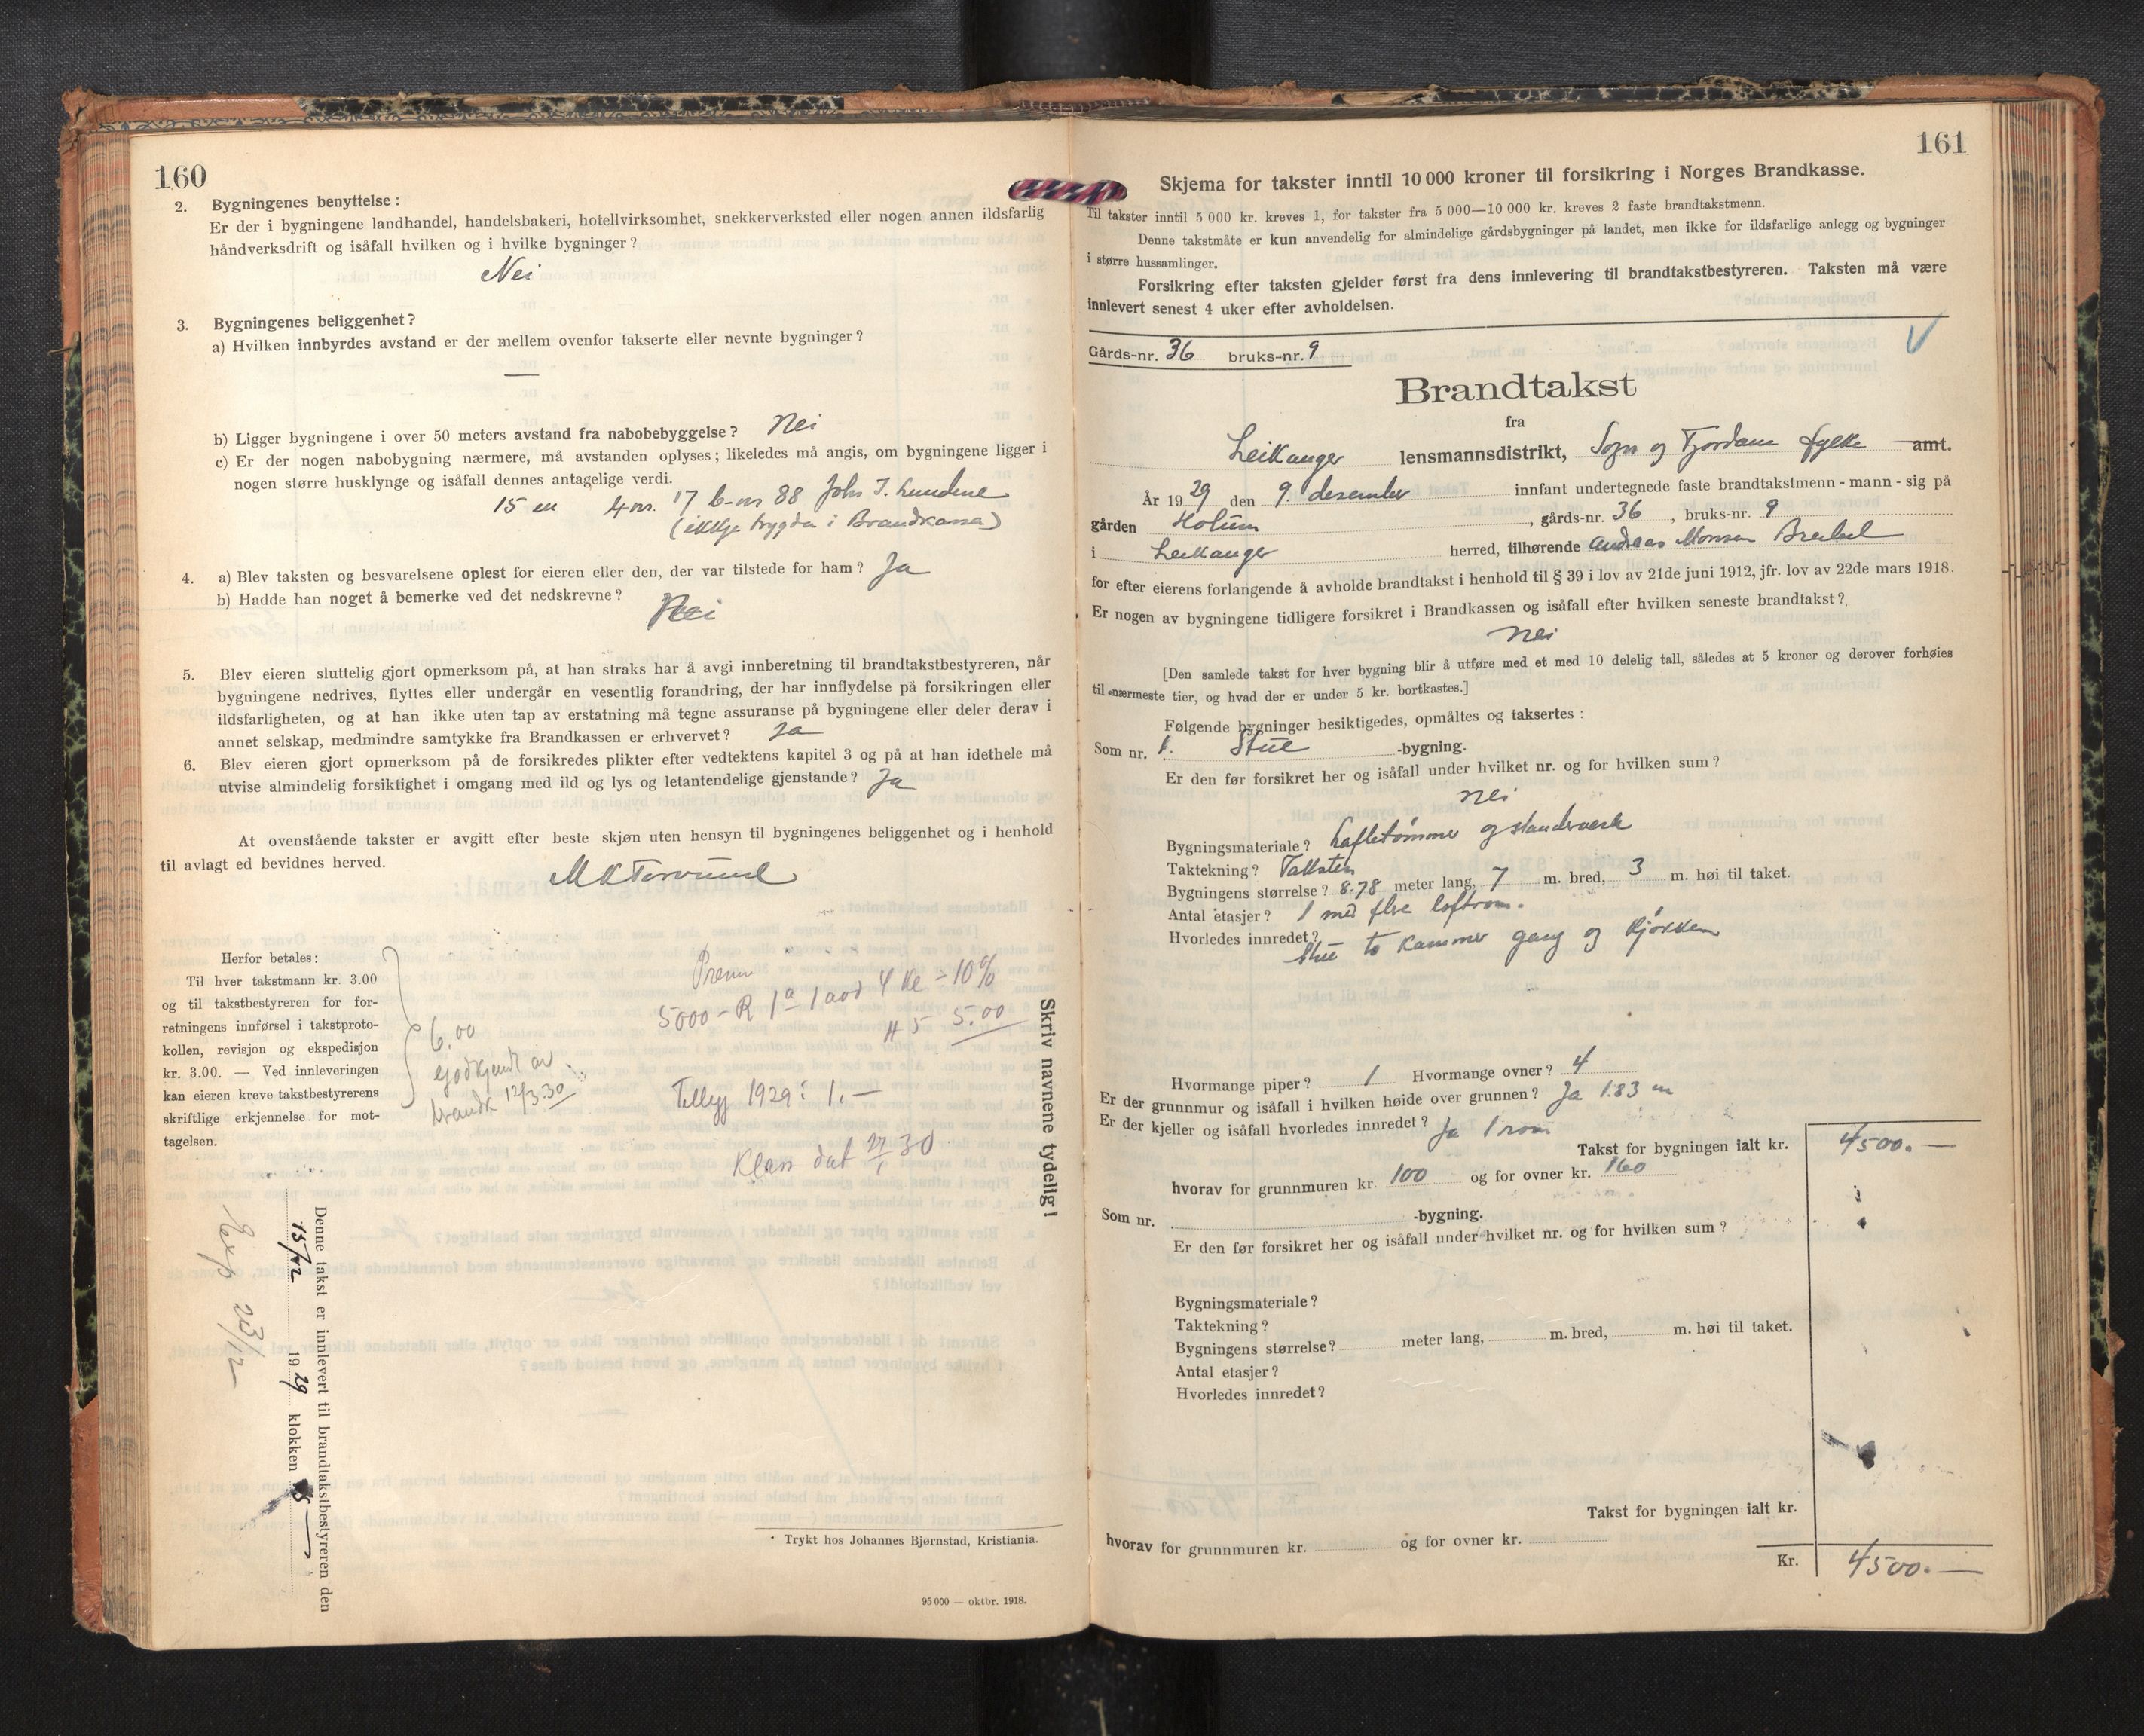 160
2. Bygningenes benyttelse:
Er der i bygningene landhandel, handelsbakeri, hotellvirksomhet, snekkerverksted eller nogen annen ildsfarlig
håndverksdrift og isåfall hvilken og i hvilke bygninger?
Nei
3. Bygningenes beliggenhet?
a) Hvilken innbyrdes avstand er der mellem ovenfor takserte eller nevnte bygninger?
—
b) Ligger bygningene i over 50 meters avstand fra nabobebyggelse? Nei
c) Er der nogen nabobygning nærmere, må avstanden oplyses; likeledes må angis, om bygningene ligger i
nogen større husklynge og isåfall dennes antagelige verdi.
15 m 17 b-nr 88 Johs J.
(ikkje trygda i Brandkassa)
4. a) Blev taksten og besvarelsene oplest for eieren eller den, der var tilstede for ham? Ja
b) Hadde han noget å bemerke ved det nedskrevne?
Nei
5. Blev eieren sluttelig gjort opmerksom på, at han straks har å avgi innberetning til brandtakstbestyreren, når
bygningene nedrives, flyttes eller undergår en vesentlig forandring, der har innflydelse på forsikringen eller
ildsfarligheten, og at han ikke uten tap av erstatning må tegne assuranse på bygningene eller deler derav i
annet selskap, medmindre samtykke fra Brandkassen er erhvervet? Ja
6. Blev eieren gjort opmerksom på de forsikredes plikter efter vedtektens kapitel 3 og på at han idethele må
utvise almindelig forsiktighet i omgang med ild og lys og letantendelige gjenstande? Ja
At ovenstående takster er avgitt efter beste skjøn uten hensyn til bygningenes beliggenhet og i henhold
til avlagt ed bevidnes herved.
Herfor betales:
Til hver takstmann kr. 3.00
og til takstbestyreren for for-
retningens innførsel i takstproto-
kollen, revisjon og ekspedisjon
kr. 3.00. — Ved innleveringen
kan eieren kreve takstbestyrerens
skriftlige erkjennelse for mot-
tagelsen.
6.00
godkjendt av
brandk 12/3.30
Prem
5000 - R 1a 1 avd 4 kl = 10%
H 5 5.00
Tillegg 1929: 1.—
Klass dat 30
Skriv navnene tydelig!
Denne takst er innlevert til brandtakstbestyreren den
15/12 1929 klokken
Exp 23/12
* Trykt hos Johannes Bjørnstad, Kristiania.
95 000 — oktbr. 1918.
161
Skjema for takster inntil 10 000 kroner til forsikring i Norges Brandkasse.
Til takster inntil 5 000 kr. kreves 1, for takster fra 5 000—10 000 kr. kreves 2 faste brandtakstmenn.
Denne takstmåte er kun anvendelig for almindelige gårdsbygninger på landet, men ikke for ildsfarlige anlegg og bygninger
i større hussamlinger.
Forsikring efter taksten gjelder først fra dens innlevering til brandtakstbestyreren. Taksten må være
innlevert senest 4 uker efter avholdelsen.
Gårds-nr. 36 bruks-nr. 9
Brandtakst
fra
Leikanger lensmannsdistrikt, Sogn og Fjordane fylke amt.
År 1929 den 9. desember innfant undertegnede faste brandtakstmenn - mann - sig på
gården , gårds-nr. 36, bruks-nr. 9
i Leikanger herred, tilhørende Andreas Monsen
for efter eierens forlangende å avholde brandtakst i henhold til § 39 i lov av 21de juni 1912, jfr. lov av 22de mars 1918.
Er nogen av bygningene tidligere forsikret i Brandkassen og isåfall efter hvilken seneste brandtakst?
Nei
[Den samlede takst for hver bygning blir å utføre med et med 10 delelig tall, således at 5 kroner og derover forhøies
til nærmeste tier, og hvad der er under 5 kr. bortkastes.]
Følgende bygninger besiktigedes, opmåltes og taksertes:
Som nr. 1. Stue -bygning.
Er den før forsikret her og isåfall under hvilket nr. og for hvilken sum?
Nei
Bygningsmateriale? Laftetømmer og standerverk
Taktekning? Taksten
Bygningens størrelse? 8.78 meter lang, 7 m. bred, 3 m. høi til taket.
Antal etasjer? 1 med flre loftrom.
Hvorledes innredet?
Stue to kammer gang og kjøkken
Hvormange piper? 1 Hvormange ovner? 4
Er der grunnmur og isåfall i hvilken høide over grunnen? Ja 1.83 m
Er der kjeller og isåfall hvorledes innredet? Ja 1 rom
Takst for bygningen ialt kr. 4500.—
hvorav for grunnmuren kr. 100 og for ovner kr. 160
Som nr. -bygning.
Er den før forsikret her og isåfall under hvilket nr. og for hvilken sum?
Bygningsmateriale?
Taktekning?
Bygningens størrelse? meter lang, m. bred, m. høi til taket.
Antal etasjer?
Hvorledes innredet?
Takst for bygningen ialt kr.
hvorav for grunnmuren kr. og for ovner kr.
Kr. 4500.—